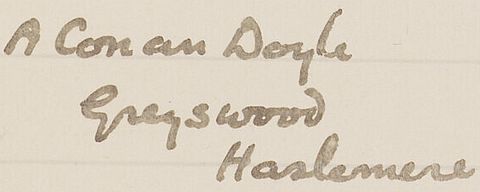 A Conan Doyle
Greyswood
Haslemere